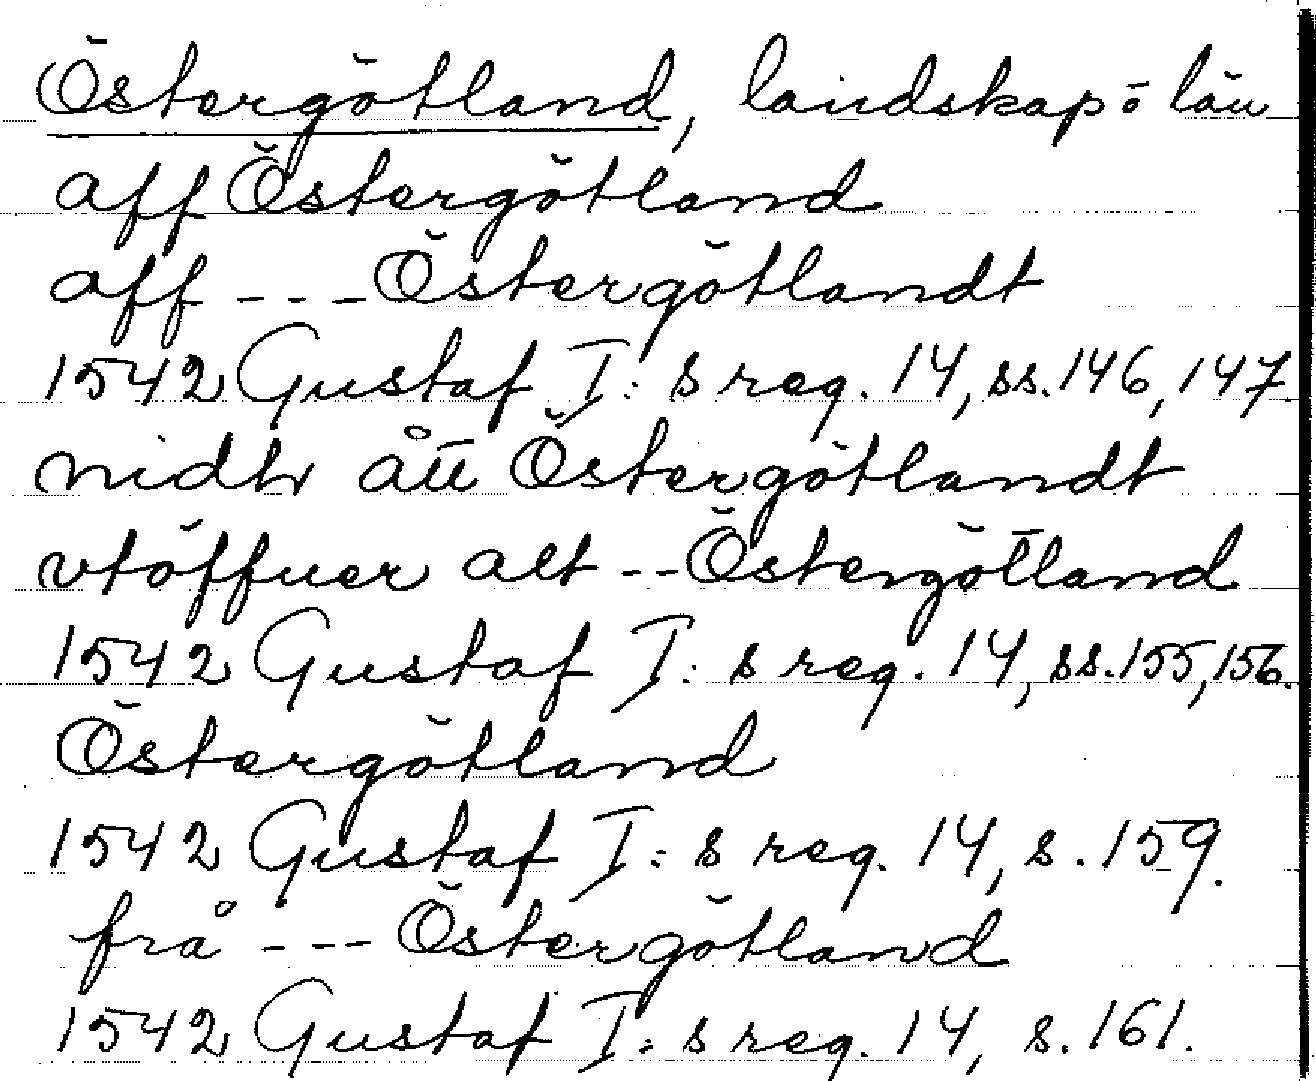 Östergötland, landskap o län
aff Östergötland
aff --- Östergötlandt
1542 Gustaf I:s reg. 14, ss. 146, 147.
nidh ått Östergötlandt
vtöffuer alt -- Östergötland
1542 Gustaf I:s reg. 14, ss. 155, 156.
Östergötland
1542 Gustaf I:s reg. 14, s. 159.
frå --- Östergötland
1542 Gustaf I:s reg. 14, s. 161.